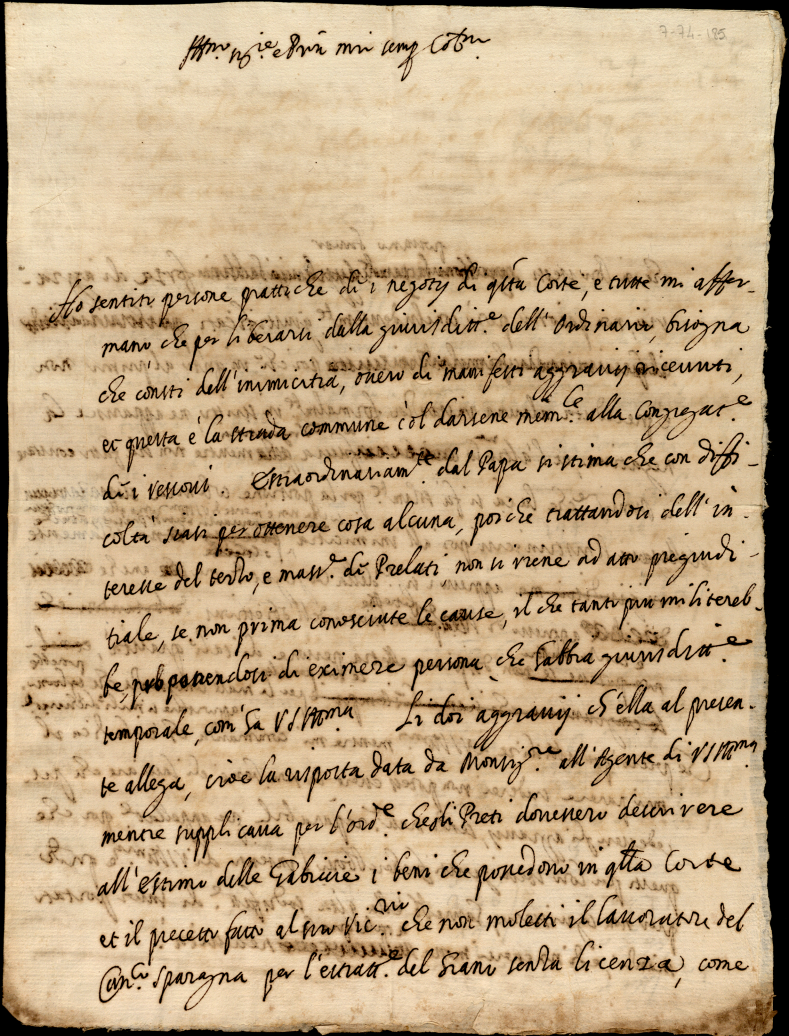 7-74-185
Illmo. sig.re e Prõn mio semp. Colmo.
Ho sentito persone prattiche di i negotij di q.sta Corte, e tutte mi affer-
mano che per liberarsi dalla giurisditt.e dell' Ordinario, bisogna
che consti dell'inimicitia, overo di manifesti aggravij ricevuti,
et questa è la strada commune col darsene mem.le alla Congregat.e
di i Vescovi. Estraordinariam.te dal Papa si stima che con diffi-
coltà siasi per ottenere cosa alcuna, poiche trattandosi dell' in-
teresse del terzo, e mass.e di Prelati, non si viene ad atto pregiudi-
tiale, se non prima conosciute le cause, il che tanto più militereb-
be, trattandosi di eximere persona che habbia giurisditt.e
temporale, com'ha VS Illma Li doi aggravij ch'ella al presen-
te allega, cioè la risposta data da Monsig.re all'Agente di VS Illma
mentre supplicava per l'ord.e che gli Preti dovessero descrivere
all'estimo delle Gabriere i beni che possedono in q.lla Corte
et il precetto fatto al suo Vic.rio che non molesti il lavoratore del
Can.co Sparagna per l'estratt.e del Grano senza licenza, come